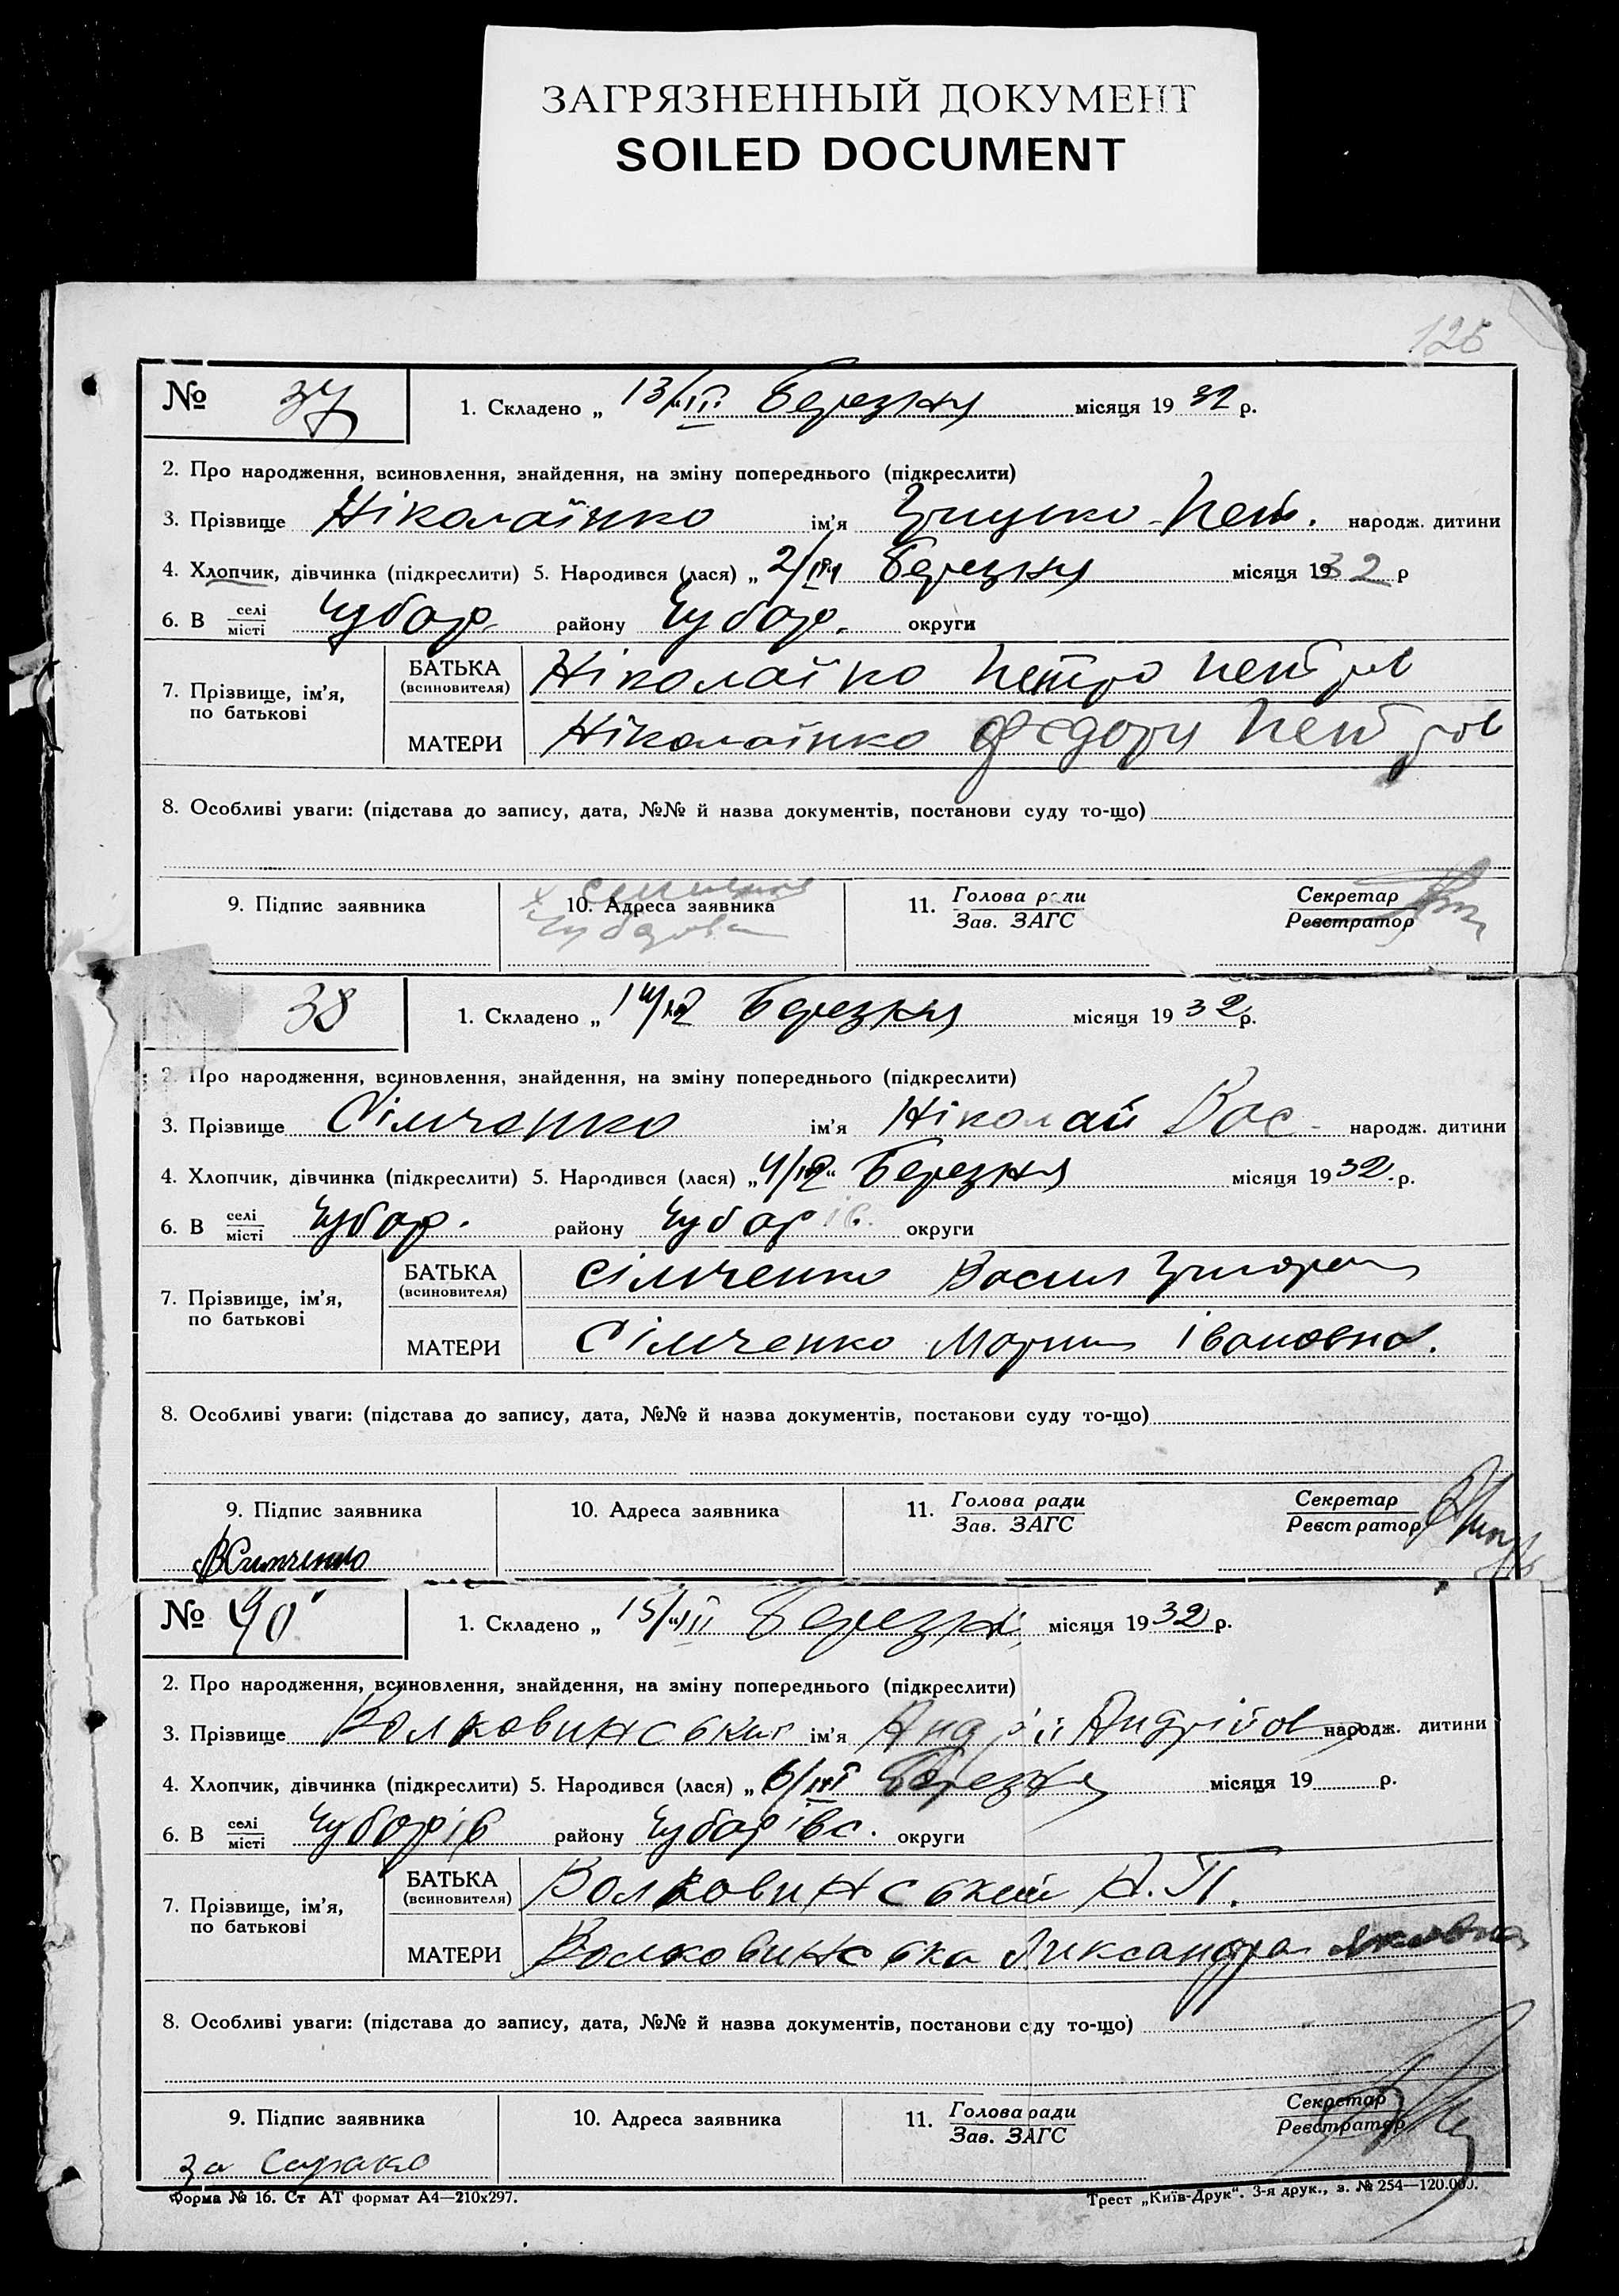 ЗАГРЯЗНЕННЫЙ ДОКУМЕНТ
SOILED DOCUMENT
126
№ 37 1. Складено „ 13/III “ Березня місяця 19 32 р.
2. Про народження, всиновлення, знайдення, на зміну попереднього (підкреслити)
3. Прізвище Ніколаїнко ім'я Петр. народж. дитини
4. Хлопчик, дівчинка (підкреслити) 5. Народився (лася) „ 2/III Березня місяця 1932 р
6. В селі/місті Чубар. району Чубар. округи
7. Прізвище, ім'я, по батькові
БАТЬКА (всиновителя) Ніколайко Петро Петров
МАТЕРИ Ніколаїнко Федори Петров
8. Особливі уваги: (підстава до запису, дата, №№ й назва документів, постанови суду то-що)
9. Підпис заявника 10. Адреса заявника 11. Голова ради / Зав. ЗАГС Секретар / Реєстратор
38 1. Складено „ 14/III Березня місяця 19 32 р.
2. Про народження, всиновлення, знайдення, на зміну попереднього (підкреслити)
3. Прізвище Сімченко ім'я Ніколай Вас. народж. дитини
4. Хлопчик, дівчинка (підкреслити) 5. Народився (лася) „ 4/III “ Березня місяця 19 32 р.
6. В селі/місті Чубар. району Чубарів. округи
7. Прізвище, ім'я, по батькові
БАТЬКА (всиновителя) Сімченко Васил Григоров
МАТЕРИ Сімченко Мария Івановна.
8. Особливі уваги: (підстава до запису, дата, №№ й назва документів, постанови суду то-що)
9. Підпис заявника 10. Адреса заявника 11. Голова ради / Зав. ЗАГС Секретар / Реєстратор
ВСимченко
№ 40 1. Складено „ 15/“III Березня місяця 19 32 р.
2. Про народження, всиновлення, знайдення, на зміну попереднього (підкреслити)
3. Прізвище Волковинський ім'я Андрій Андрійов народж. дитини
4. Хлопчик, дівчинка (підкреслити) 5. Народився (лася) „ 6/III Березня місяця 19 р.
6. В селі/місті Чубарів району Чубарівс. округи
7. Прізвище, ім'я, по батькові
БАТЬКА (всиновителя) Волковинський А. П.
МАТЕРИ Волковинська Ликсандра Яковвна
8. Особливі уваги: (підстава до запису, дата, №№ й назва документів, постанови с ду то-що)
9. Підпис заявника 10. Адреса заявника 11. Голова ради / Зав. ЗАГС Секретар / Реєстратор
за
Форма № 16. Ст АТ формат А4—210х297. Трест „Київ-Друк“. 3-я друк., з. № 254—120.000.